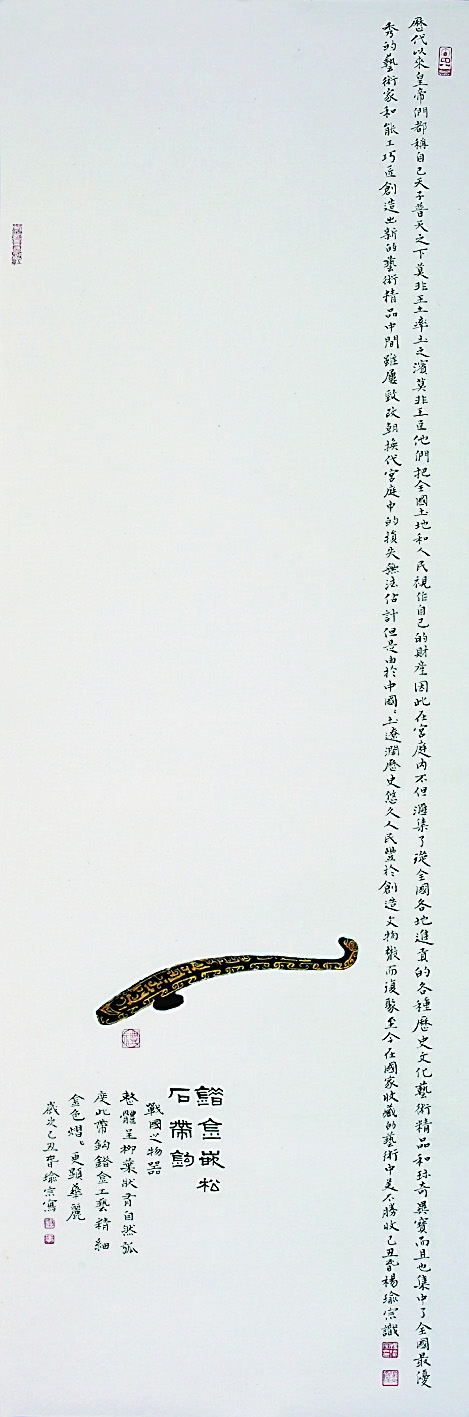 歷代以來皇帝們都稱自己天子普天之下莫非王土率土之濱莫非王臣他們把全國土地和人民視作自己的財產因此在宮庭內不但滙集了從全國各地進貢的各種歷史文化藝術精品和珍奇異寶而且也集中了全國最優
秀的藝術家和能工巧匠創造出新的藝術精品中間雖屢致改朝換代宮庭中的損失無法估計但是由於中國土遼濶歷史悠久人民豐於創造文物散而復聚至今在國家收藏的藝術中美不勝收己丑楊瑜宗識
鎦金嵌松
石帶鉤
戰國之物器
整體呈柳葉狀有自然弧
度此帶鉤鎦金工藝精細
金色熠々更顯華麗
歲次己丑瑜宗寫